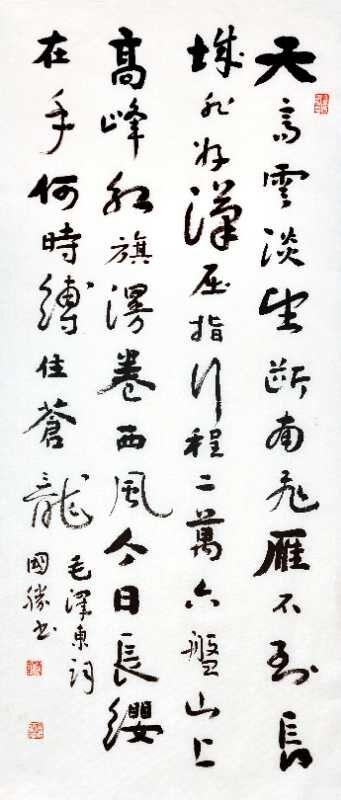 天高雲淡望斷南飛雁不到長
城非好漢屈指行程二萬六盤山上
高峰紅旗漫卷西風今日長纓
在手何時縛住蒼龍
毛澤東詞
國勝書